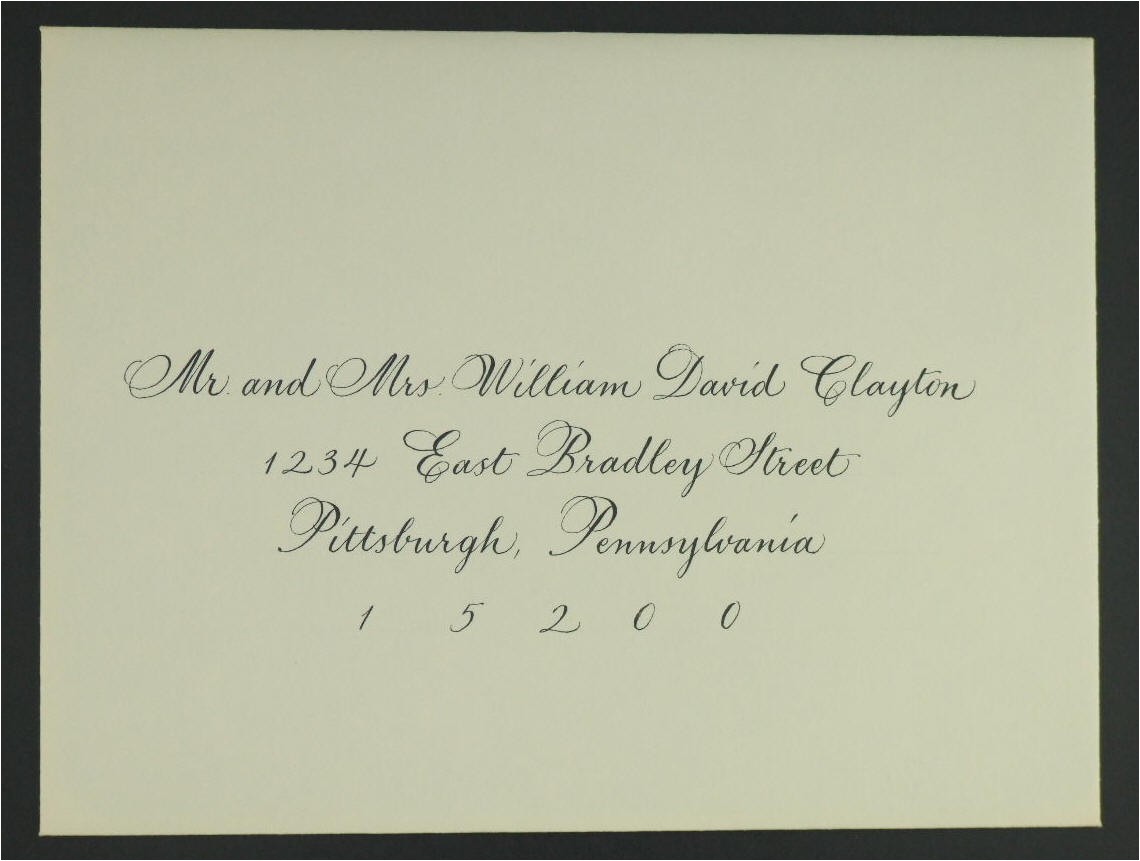 Mr. and Mrs. William David Clayton
1234 East Bradley Street
Pittsburgh, Pennsylvania
1 5 2 0 0